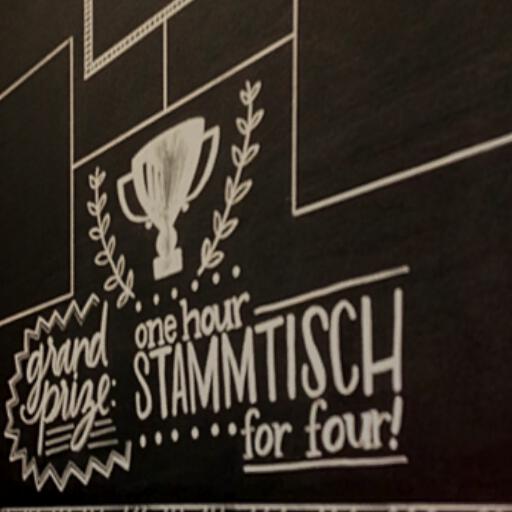 grand
prize:
one hour
STAMMTISCH
for four!